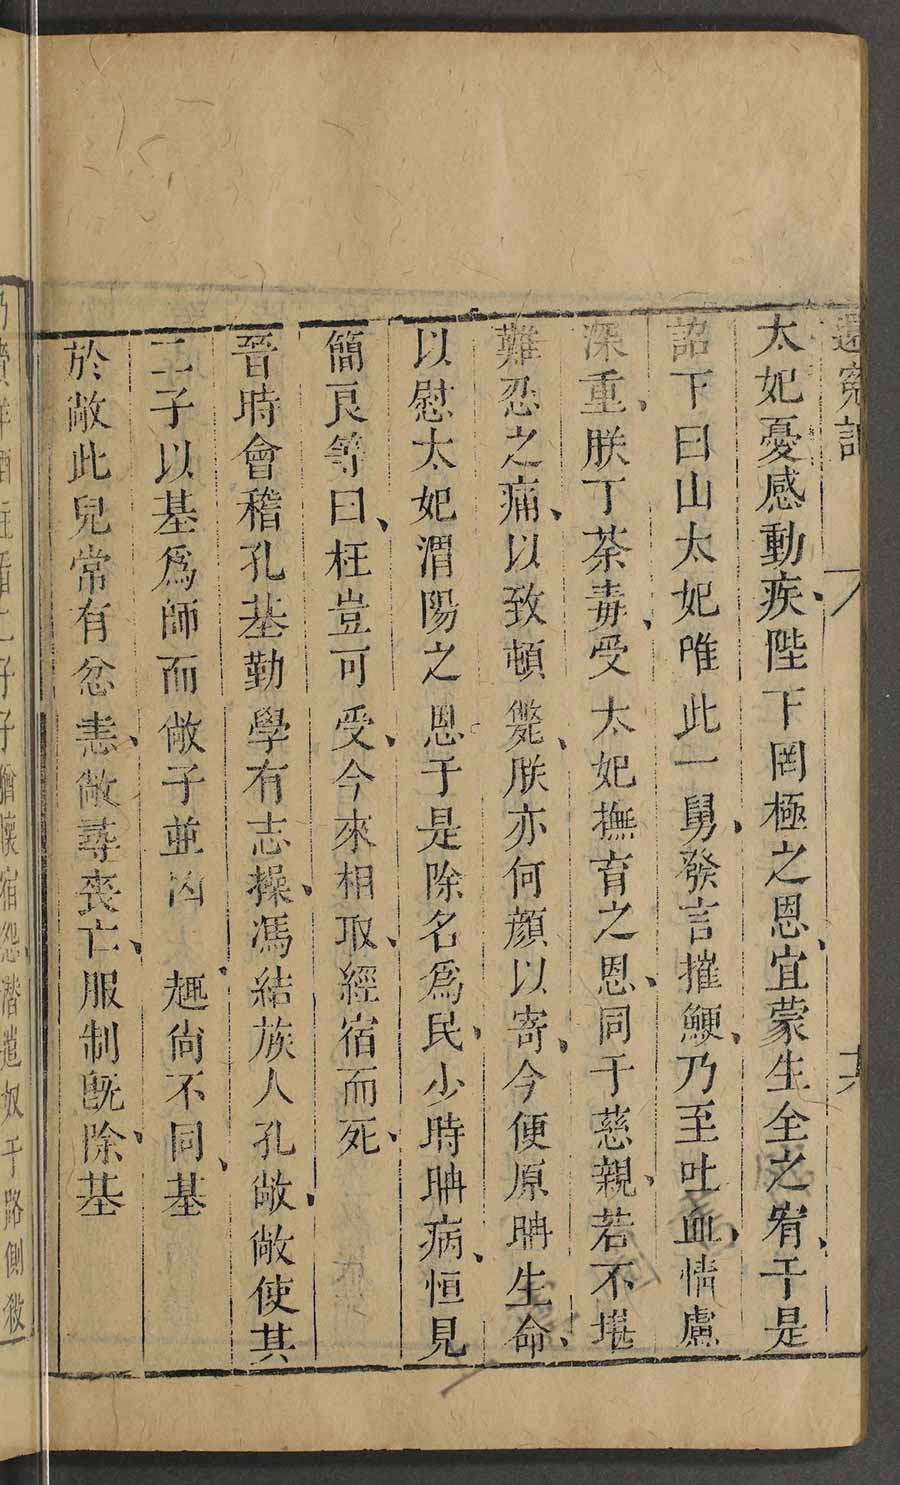 還冤記
太妃憂感動疾陛下罔極之恩宜蒙生全之宥于是
詔下曰山太妃唯此一舅發言摧鯁乃至吐血情慮
深重朕丁荼毒受太妃撫育之恩同于慈親若不堪
難忍之痛以致頓斃朕亦何顏以寄今便原聃生命
以慰太妃渭陽之恩于是除名爲民少時聃病恒見
簡良等曰枉豈可受今來相取經宿而死
晉時會稽孔基勤學有志操馮結族人孔敞敞使其
二子以基爲師而敞子並凶趣尙不同基
於敞此兒常有忿恚敞尋喪亡服制旣除基
乃賫羊酒往看二子子猶懷宿怨潛遣奴于路側殺